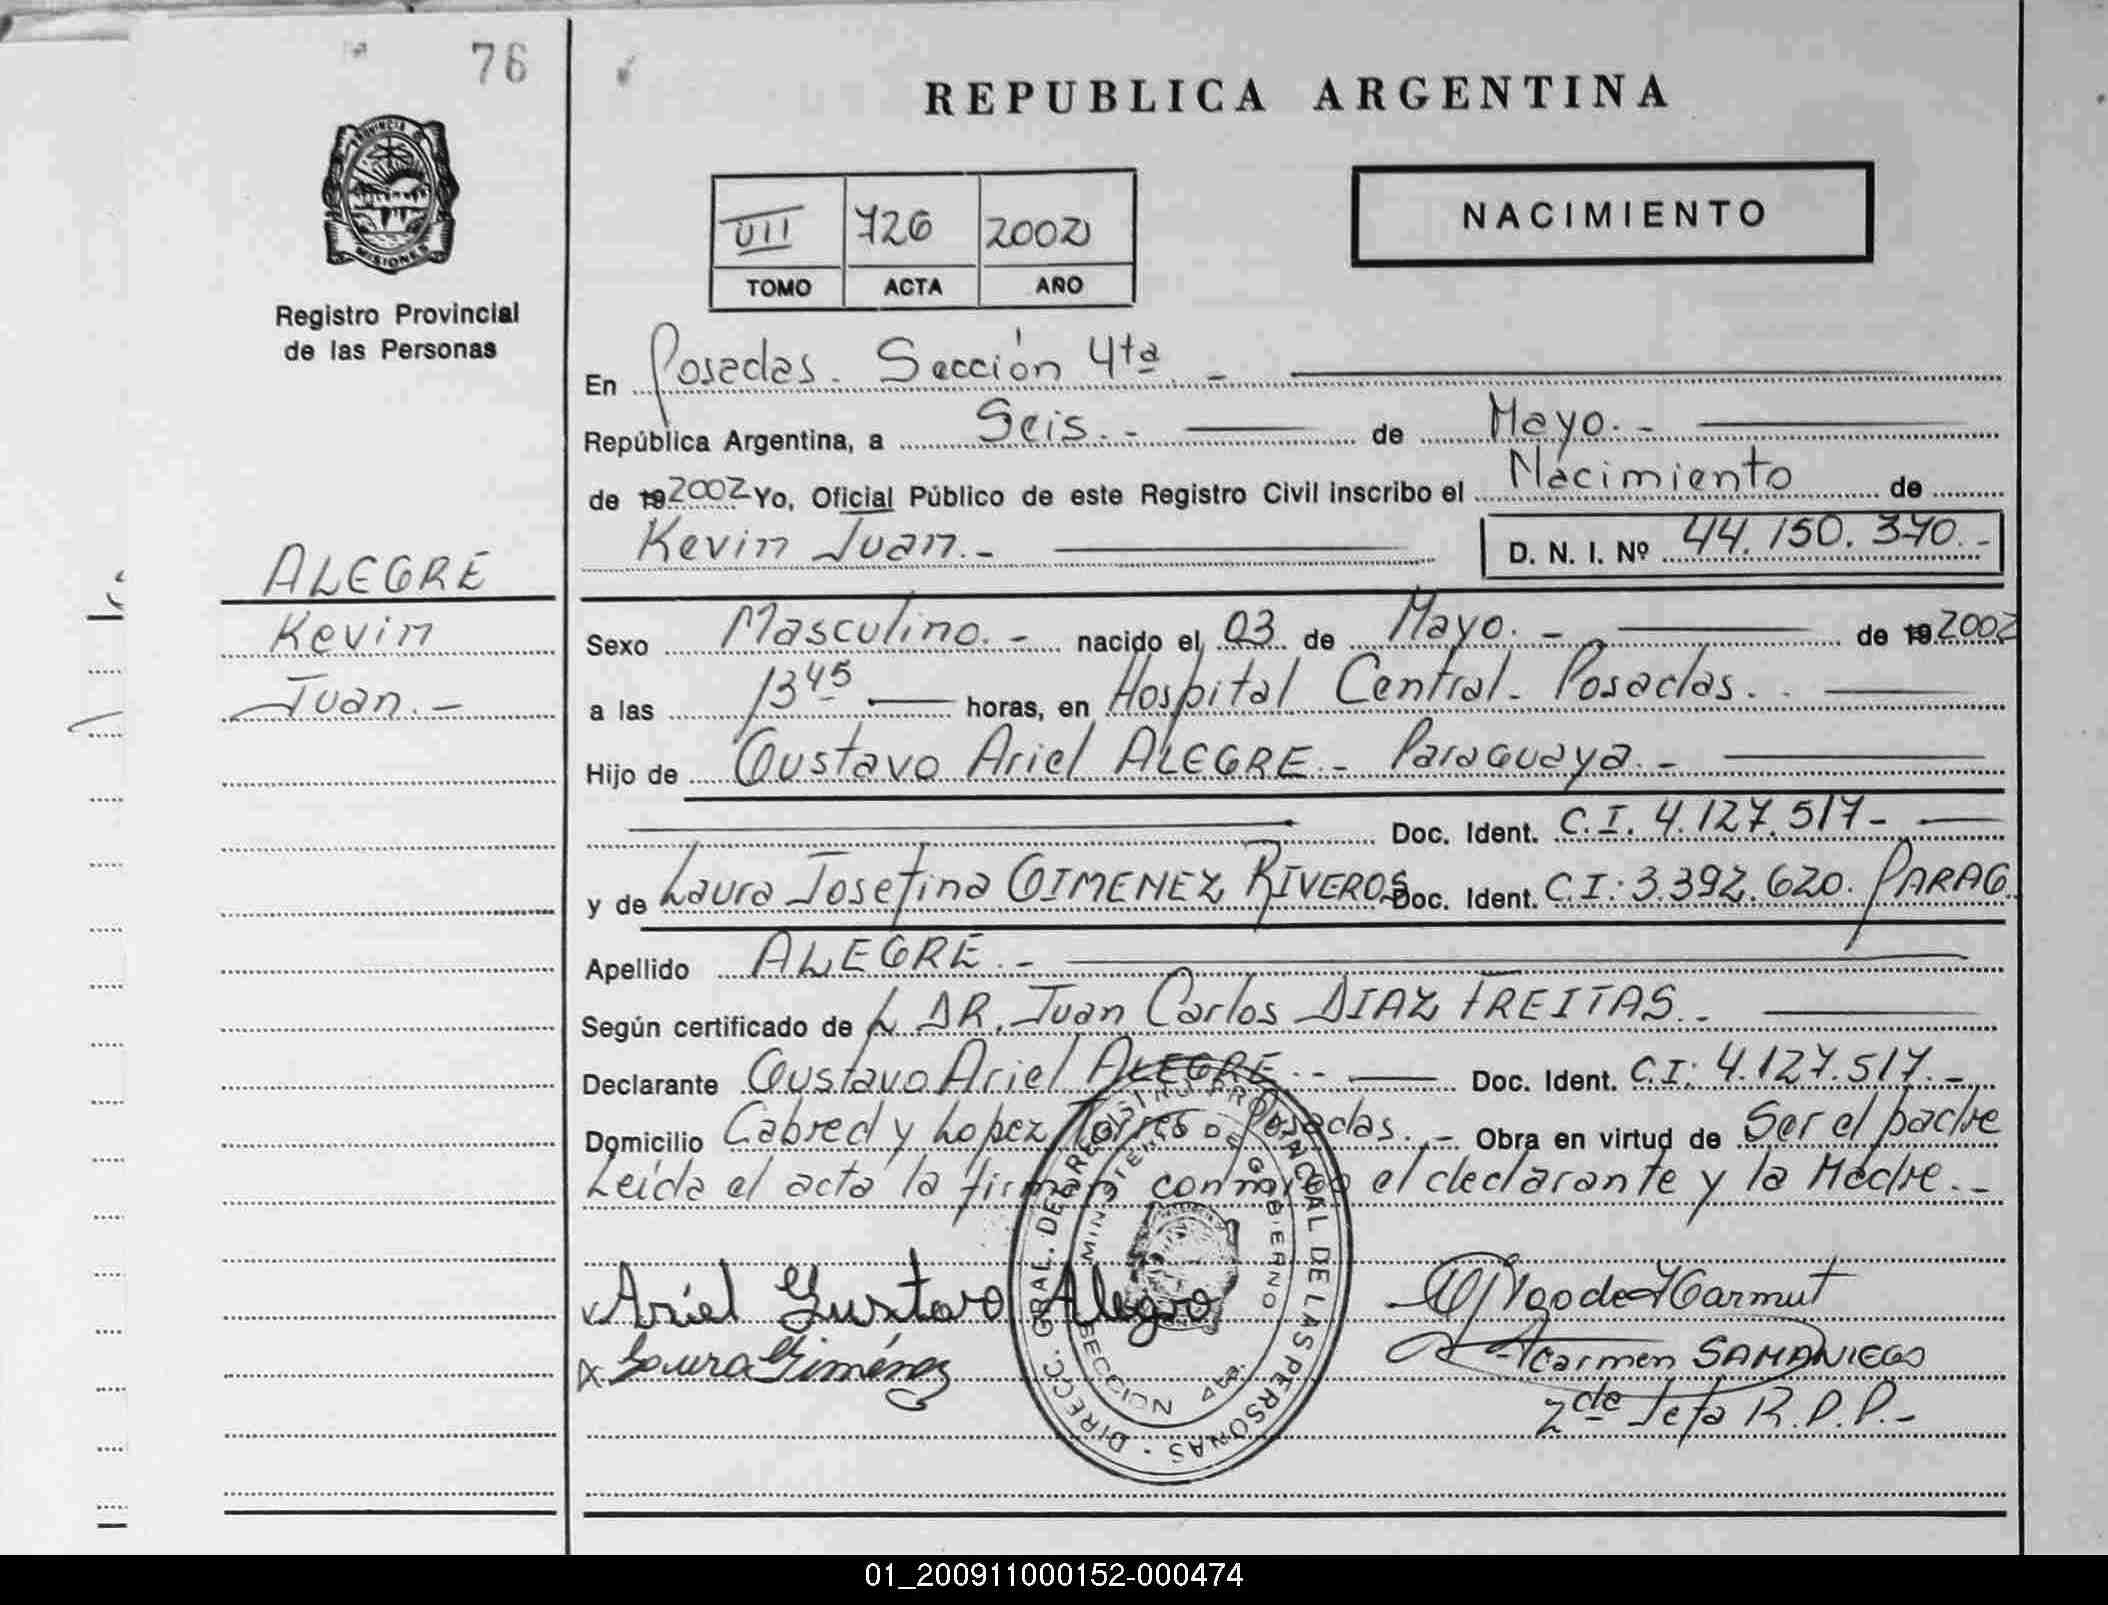 76
PROVINCIA DE
MISIONES
Registro Provincial
de las Personas
ALEGRE
Kevin
Juan.-
REPUBLICA ARGENTINA
VII 726 2002
TOMO ACTA AÑO
NACIMIENTO
En Posadas. Sección 4ta.-
República Argentina, a Seis.- de Mayo.-
de 19 2002 Yo, Oficial Público de este Registro Civil inscribo el Nacimiento de
Kevin Juan.- D. N. I. Nº 44.150.370.-
Sexo Masculino.- nacido el 03 de Mayo.- de 19 2002
a las 13 45 horas, en Hospital Central- Posadas.-
Hijo de Gustavo Ariel ALEGRE.- Paraguaya.-
Doc. Ident. C.I. 4.127.517-
y de Laura Josefina GIMENEZ RIVEROS Doc. Ident. C.I: 3.392.620. PARAG.
Apellido ALEGRE.-
Según certificado de L DR. Juan Carlos DIAZ FREITAS.-
Declarante Gustavo Ariel ALEGRE.- Doc. Ident. C.I: 4.127.517.-
Domicilio Cabred y Lopez Torres Posadas.- Obra en virtud de Ser el padre
Leída el acta la firman conmigo el declarante y la Madre.-
Ariel Gustavo Alegre
Laura Giménez
Carmen SAMANIEGO
2da Jefa R.P.P.-
DIRECC. GRAL. DEL REGISTRO PROVINCIAL DE LAS PERSONAS
MINISTERIO DE GOBIERNO
SECCION 4ta.
01_200911000152-000474